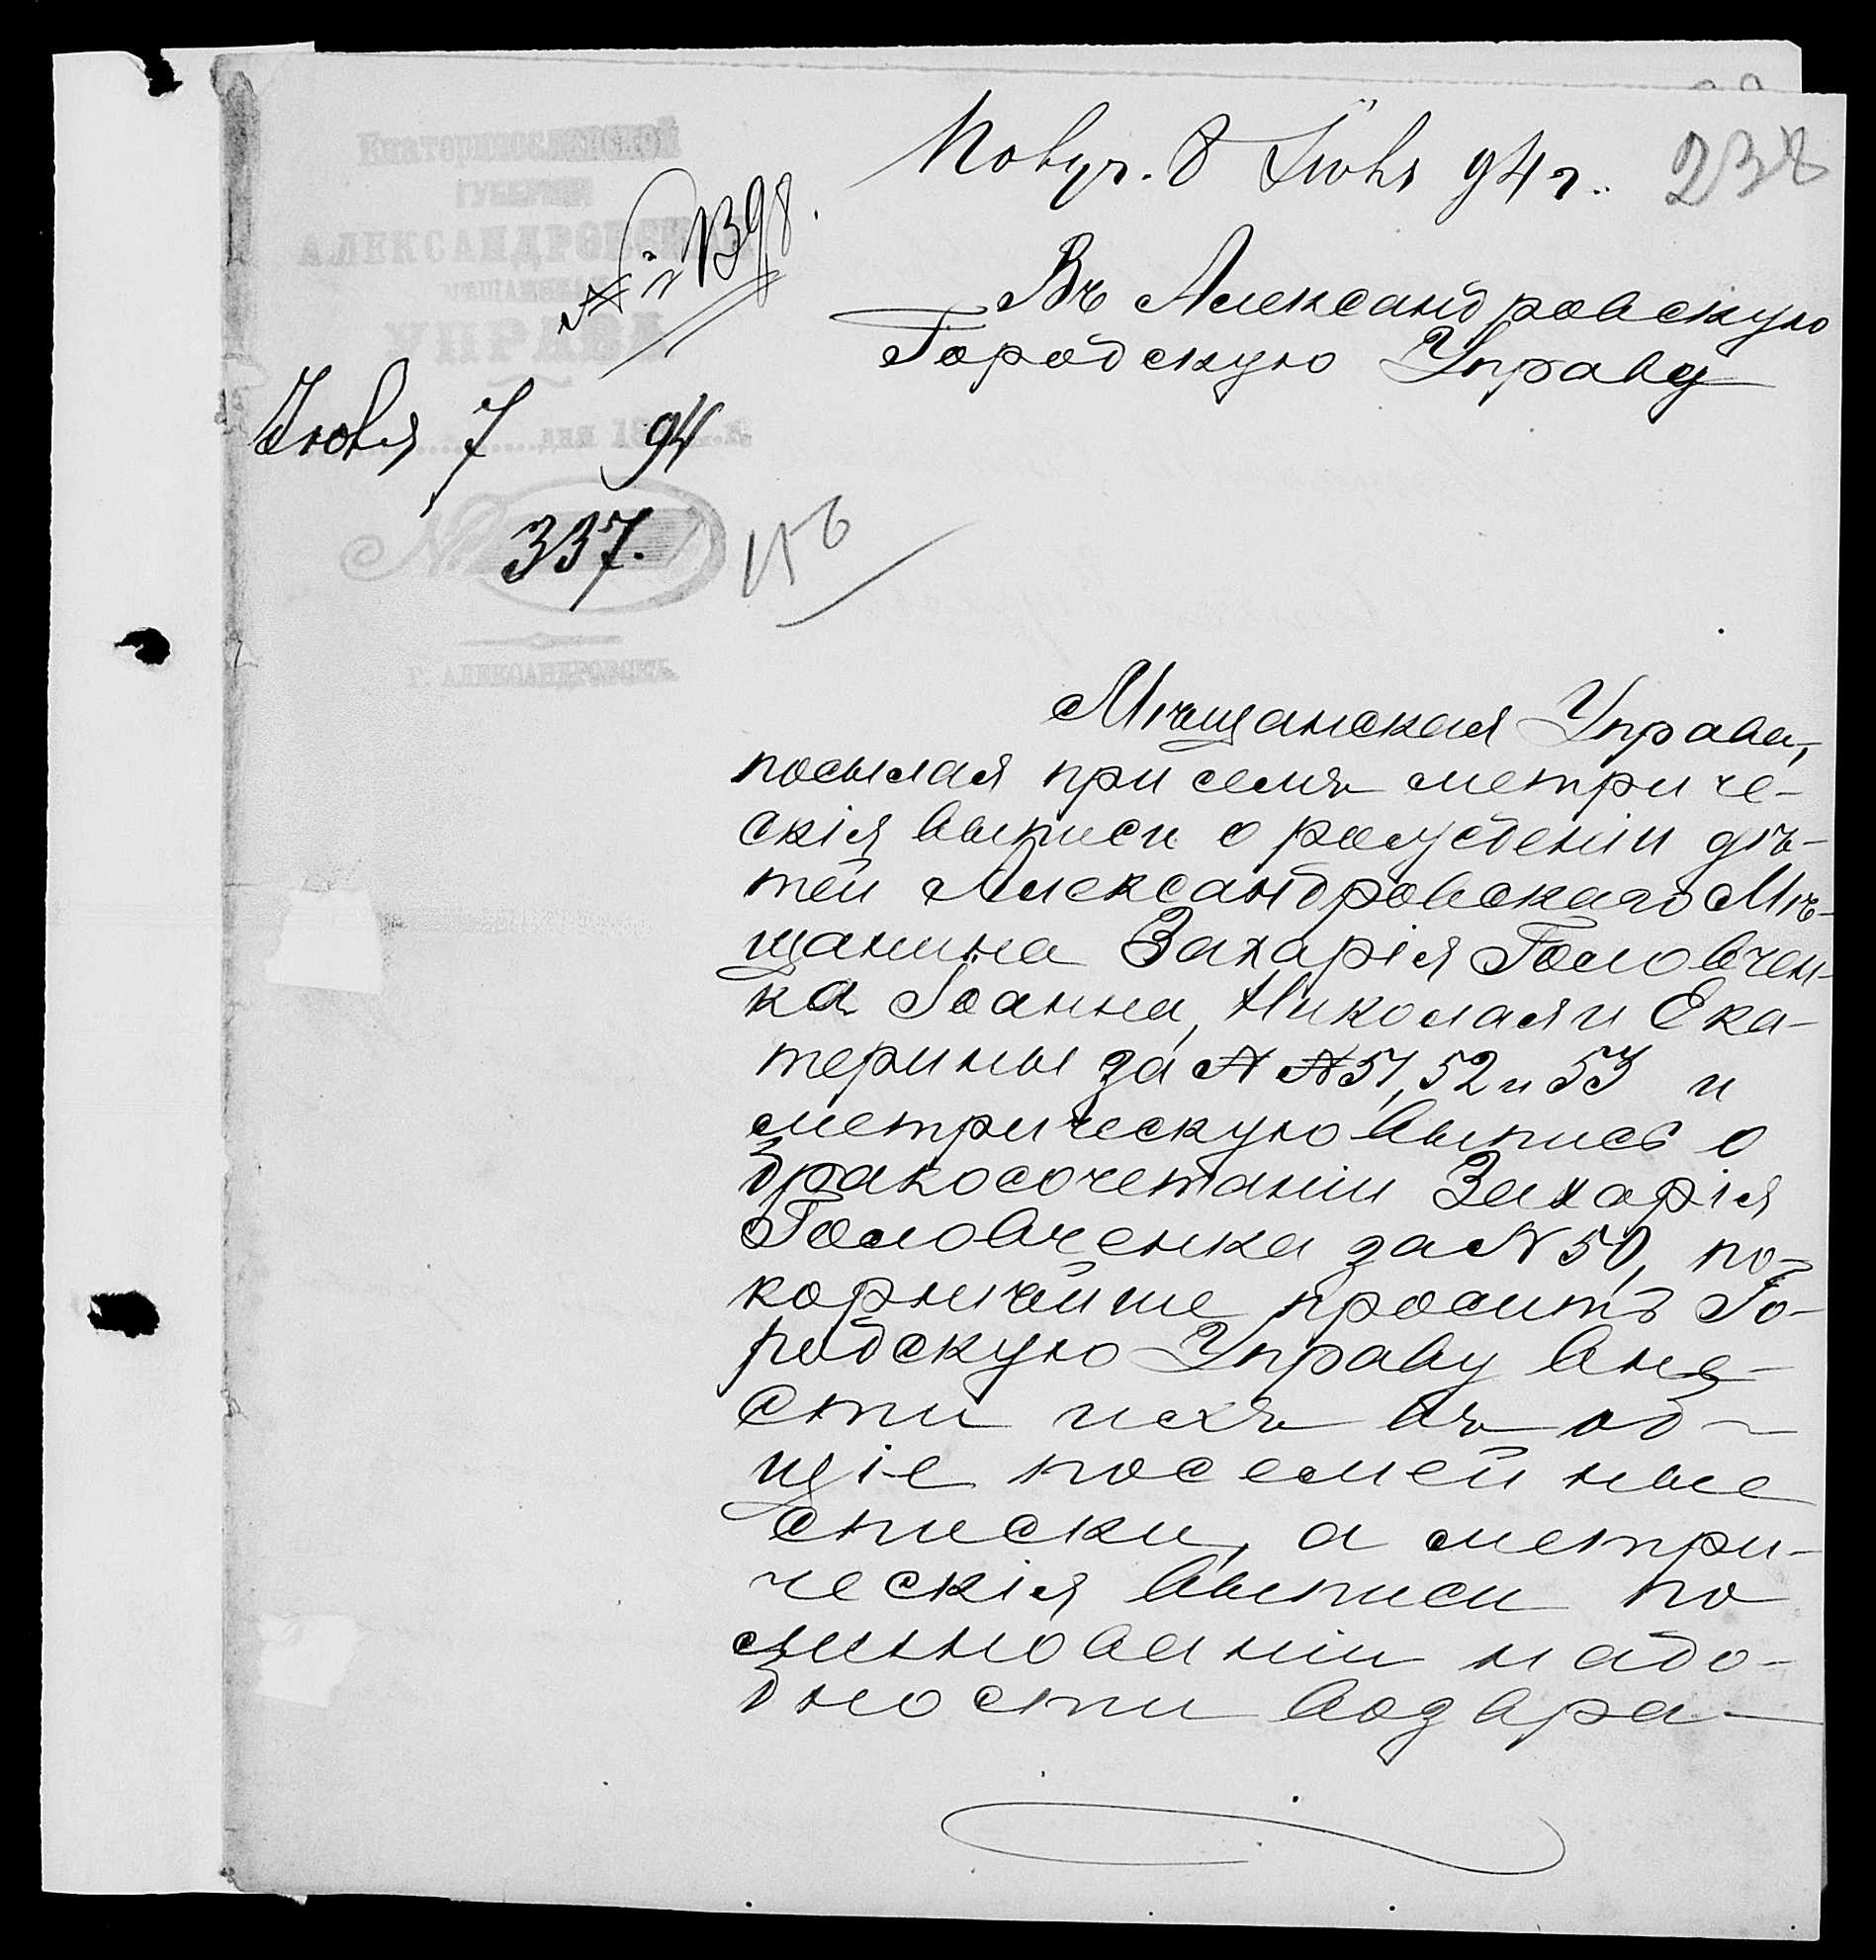 Получ. 8 Іюня 94 г.
238
Екатеринославской
ГУБЕРНІИ
АЛЕКСАНДРОВСКАЯ
МѢЩАНСКАЯ
УПРАВА
№ 1398.
Въ Александровскую
Городскую Управу
Іюня 7 дня 1894 г.
№ 337.
156
Г. АЛЕКСАНДРОВСКЪ.
Мѣщанская Управа,
посылая при семъ метриче-
скія выписи о рожденіи дѣ-
тей Александровскаго Мѣ-
щанина Захарія Головчен-
ка Іоанна, Николая и Ека-
терины за № № 51, 52 и 53 и
метрическую выпись о
бракосочетаніи Захарія
Головченка за № 50, по-
корнѣйше проситъ Го-
родскую Управу вне-
сти ихъ въ об-
щіе посемейные
списки, а метри-
ческія выписи по
минованіи надо-
бности возвра-